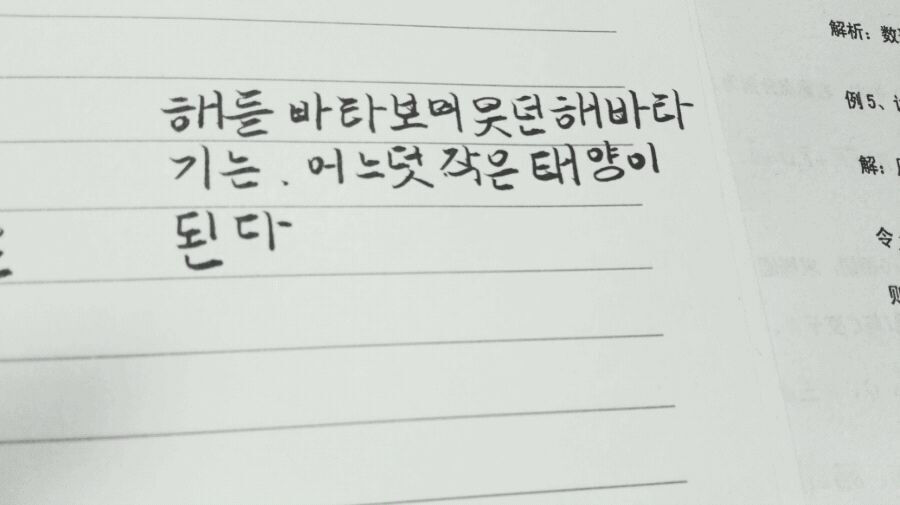 해를 바라보며 웃던 해바라
기는, 어느덧 작은 태양이
된다
解析：数
例5、
解：
令
则